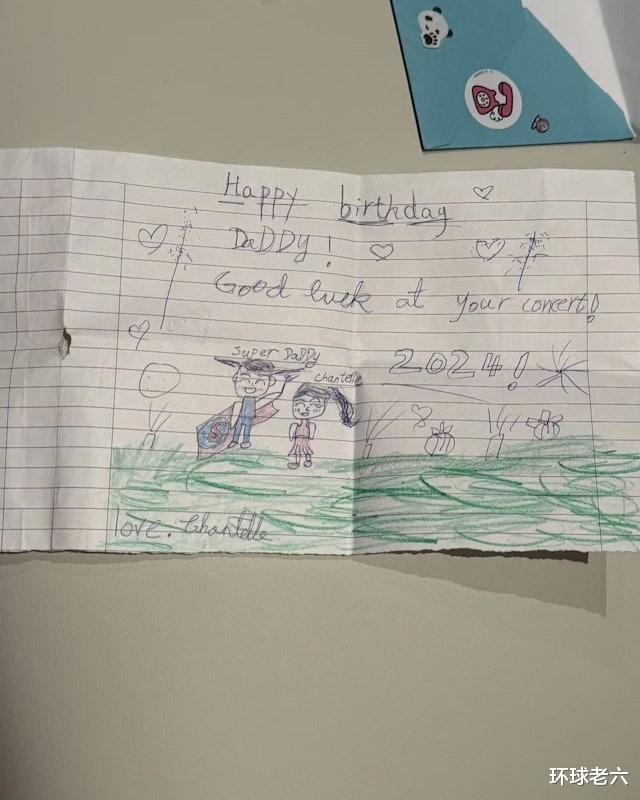 Happy birthday
DaDDy!
Good luck at your concert!
super DaDDy
chantelle
2024!
S
love. Chantelle
环球老六